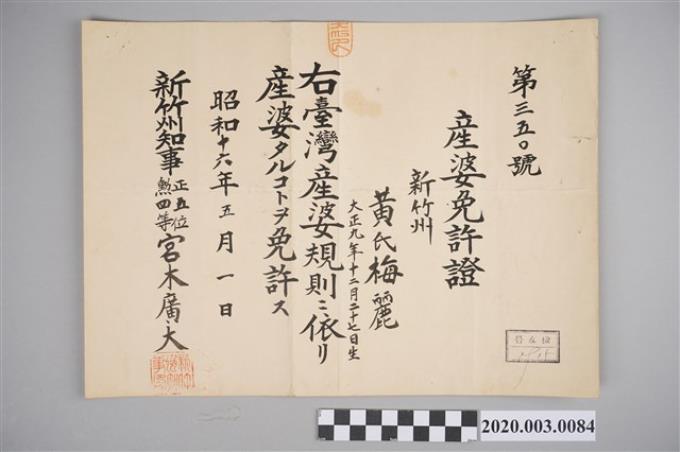 第三五〇號
産婆免許證
新竹州
黃氏梅麗
大正九年十二月二十七日生
右臺灣産婆規則ニ依リ
産婆タルコトヲ免許ス
昭和十六年五月一日
新竹州知事正五位勲四等宮木廣大
2020.003.0084